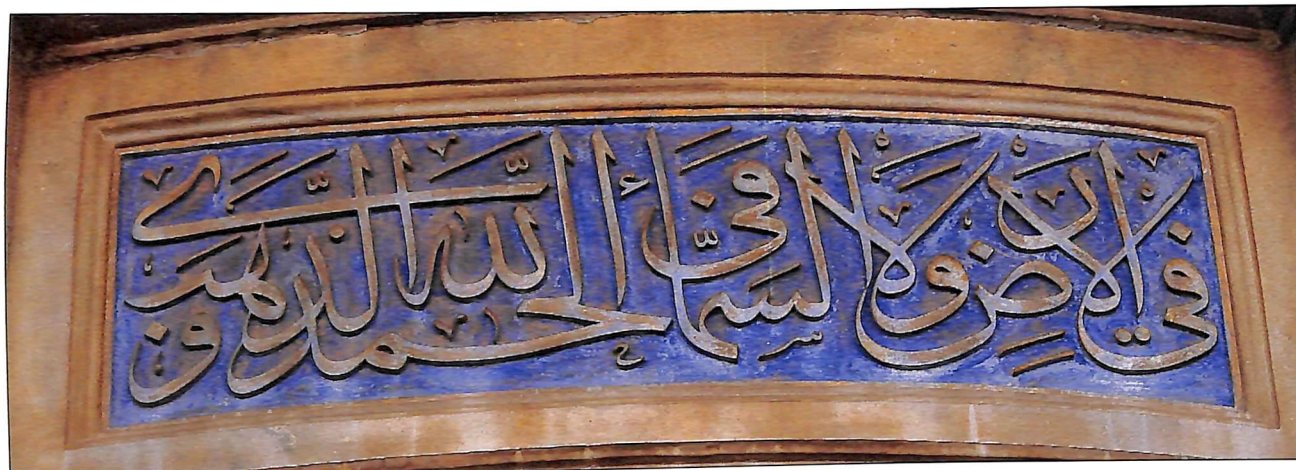 فى الارض ولا فى السماء الحمد لله الذى وهب